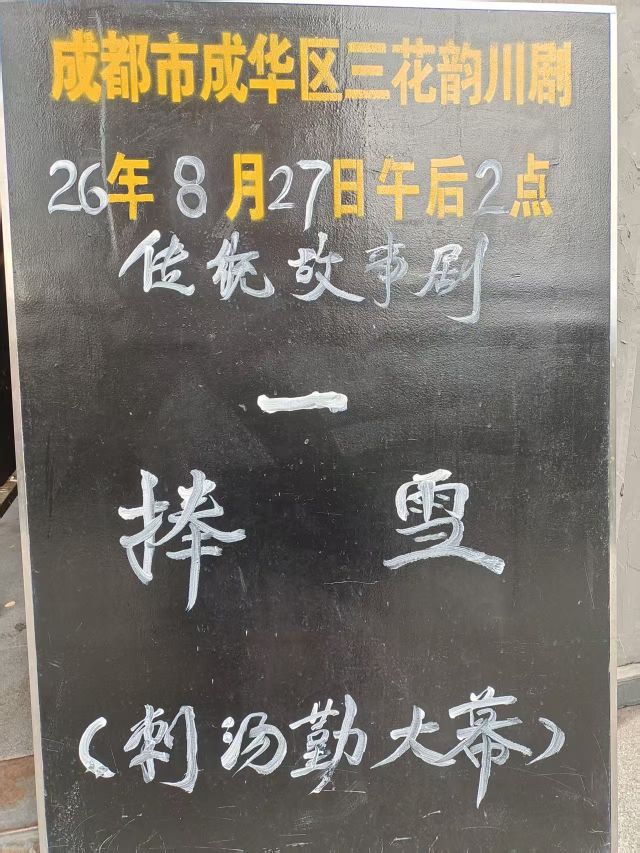 成都市成华区三花韵川剧
26年8月27日午后2点
传统故事剧
一
捧雪
(刺汤勤大幕)